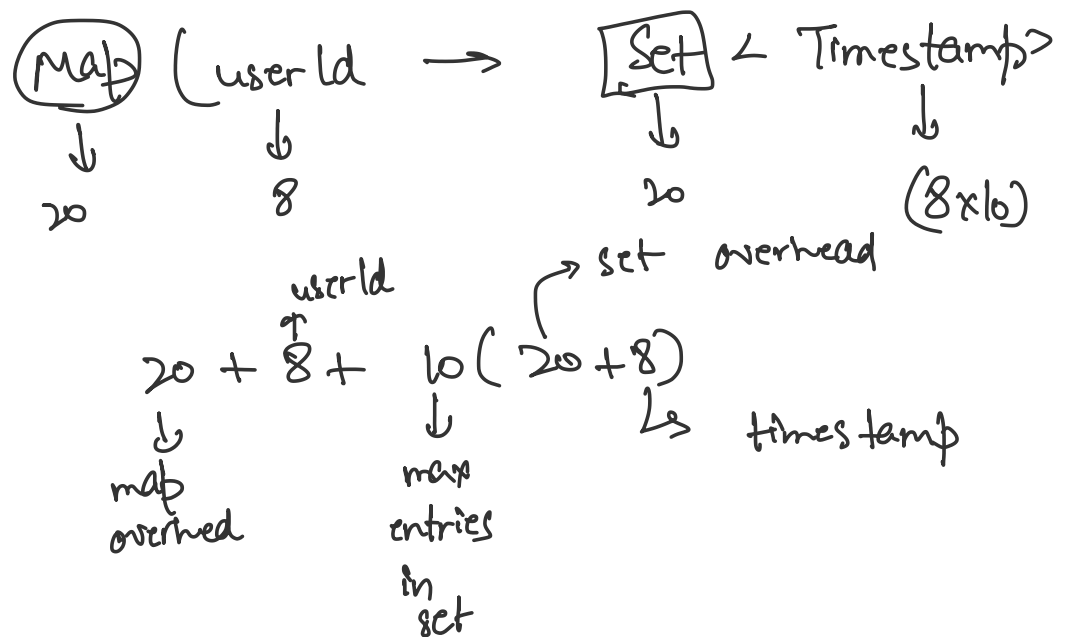 Map (userId → Set < Timestamp>
20 8 20 (8x10)
set overhead
userId
20 + 8 + 10 ( 20 + 8)
timestamp
map
overhed
max
entries
in
set